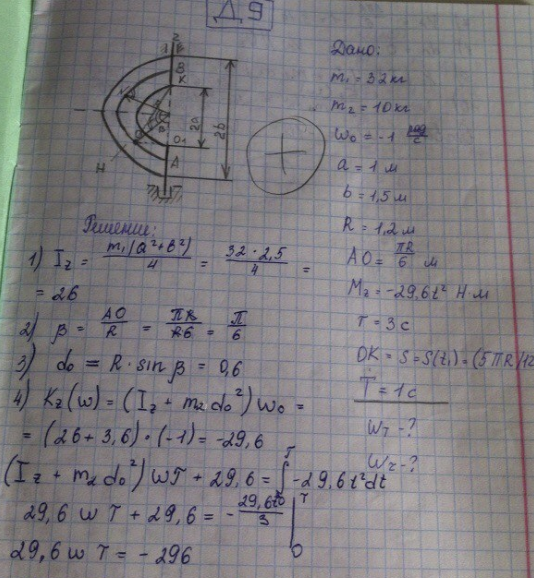 Д 9
Дано:
m₁ = 32 кг
m₂ = 10 кг
ω₀ = -1 рад/с
a = 1 м
b = 1,5 м
R = 1,2 м
AO = πR/6 м
Mz = -29,6t² Н·м
τ = 3 с
OK = S = S(t₁) = (5πR/12
T = 1 с
ωτ - ?
ωT - ?
z
B
K
O₁
A
H
2a
2b
Решение:
1) Iz = m₁(a²+b²)/4 = 32·2,5/4 =
= 26
2) β = AO/R = πR/R6 = π/6
3) d₀ = R · sin β = 0,6
4) Kz(ω) = (Iz + m₂d₀²)ω₀ =
= (26 + 3,6)·(-1) = -29,6
(Iz + m₂d₀²) ωτ + 29,6 = ∫ -29,6 t² dt
29,6 ωτ + 29,6 = - 29,6t³/3 |
29,6 ωτ = -296